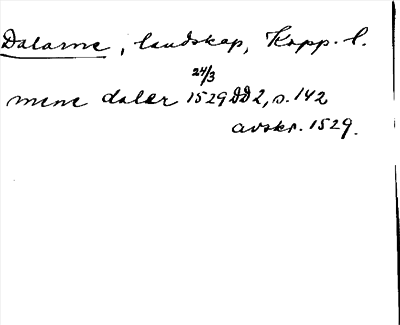 Dalarne, landskap, Kopp. l.
24/3
mene daler 1529 DD2, s. 142
avskr. 1529.